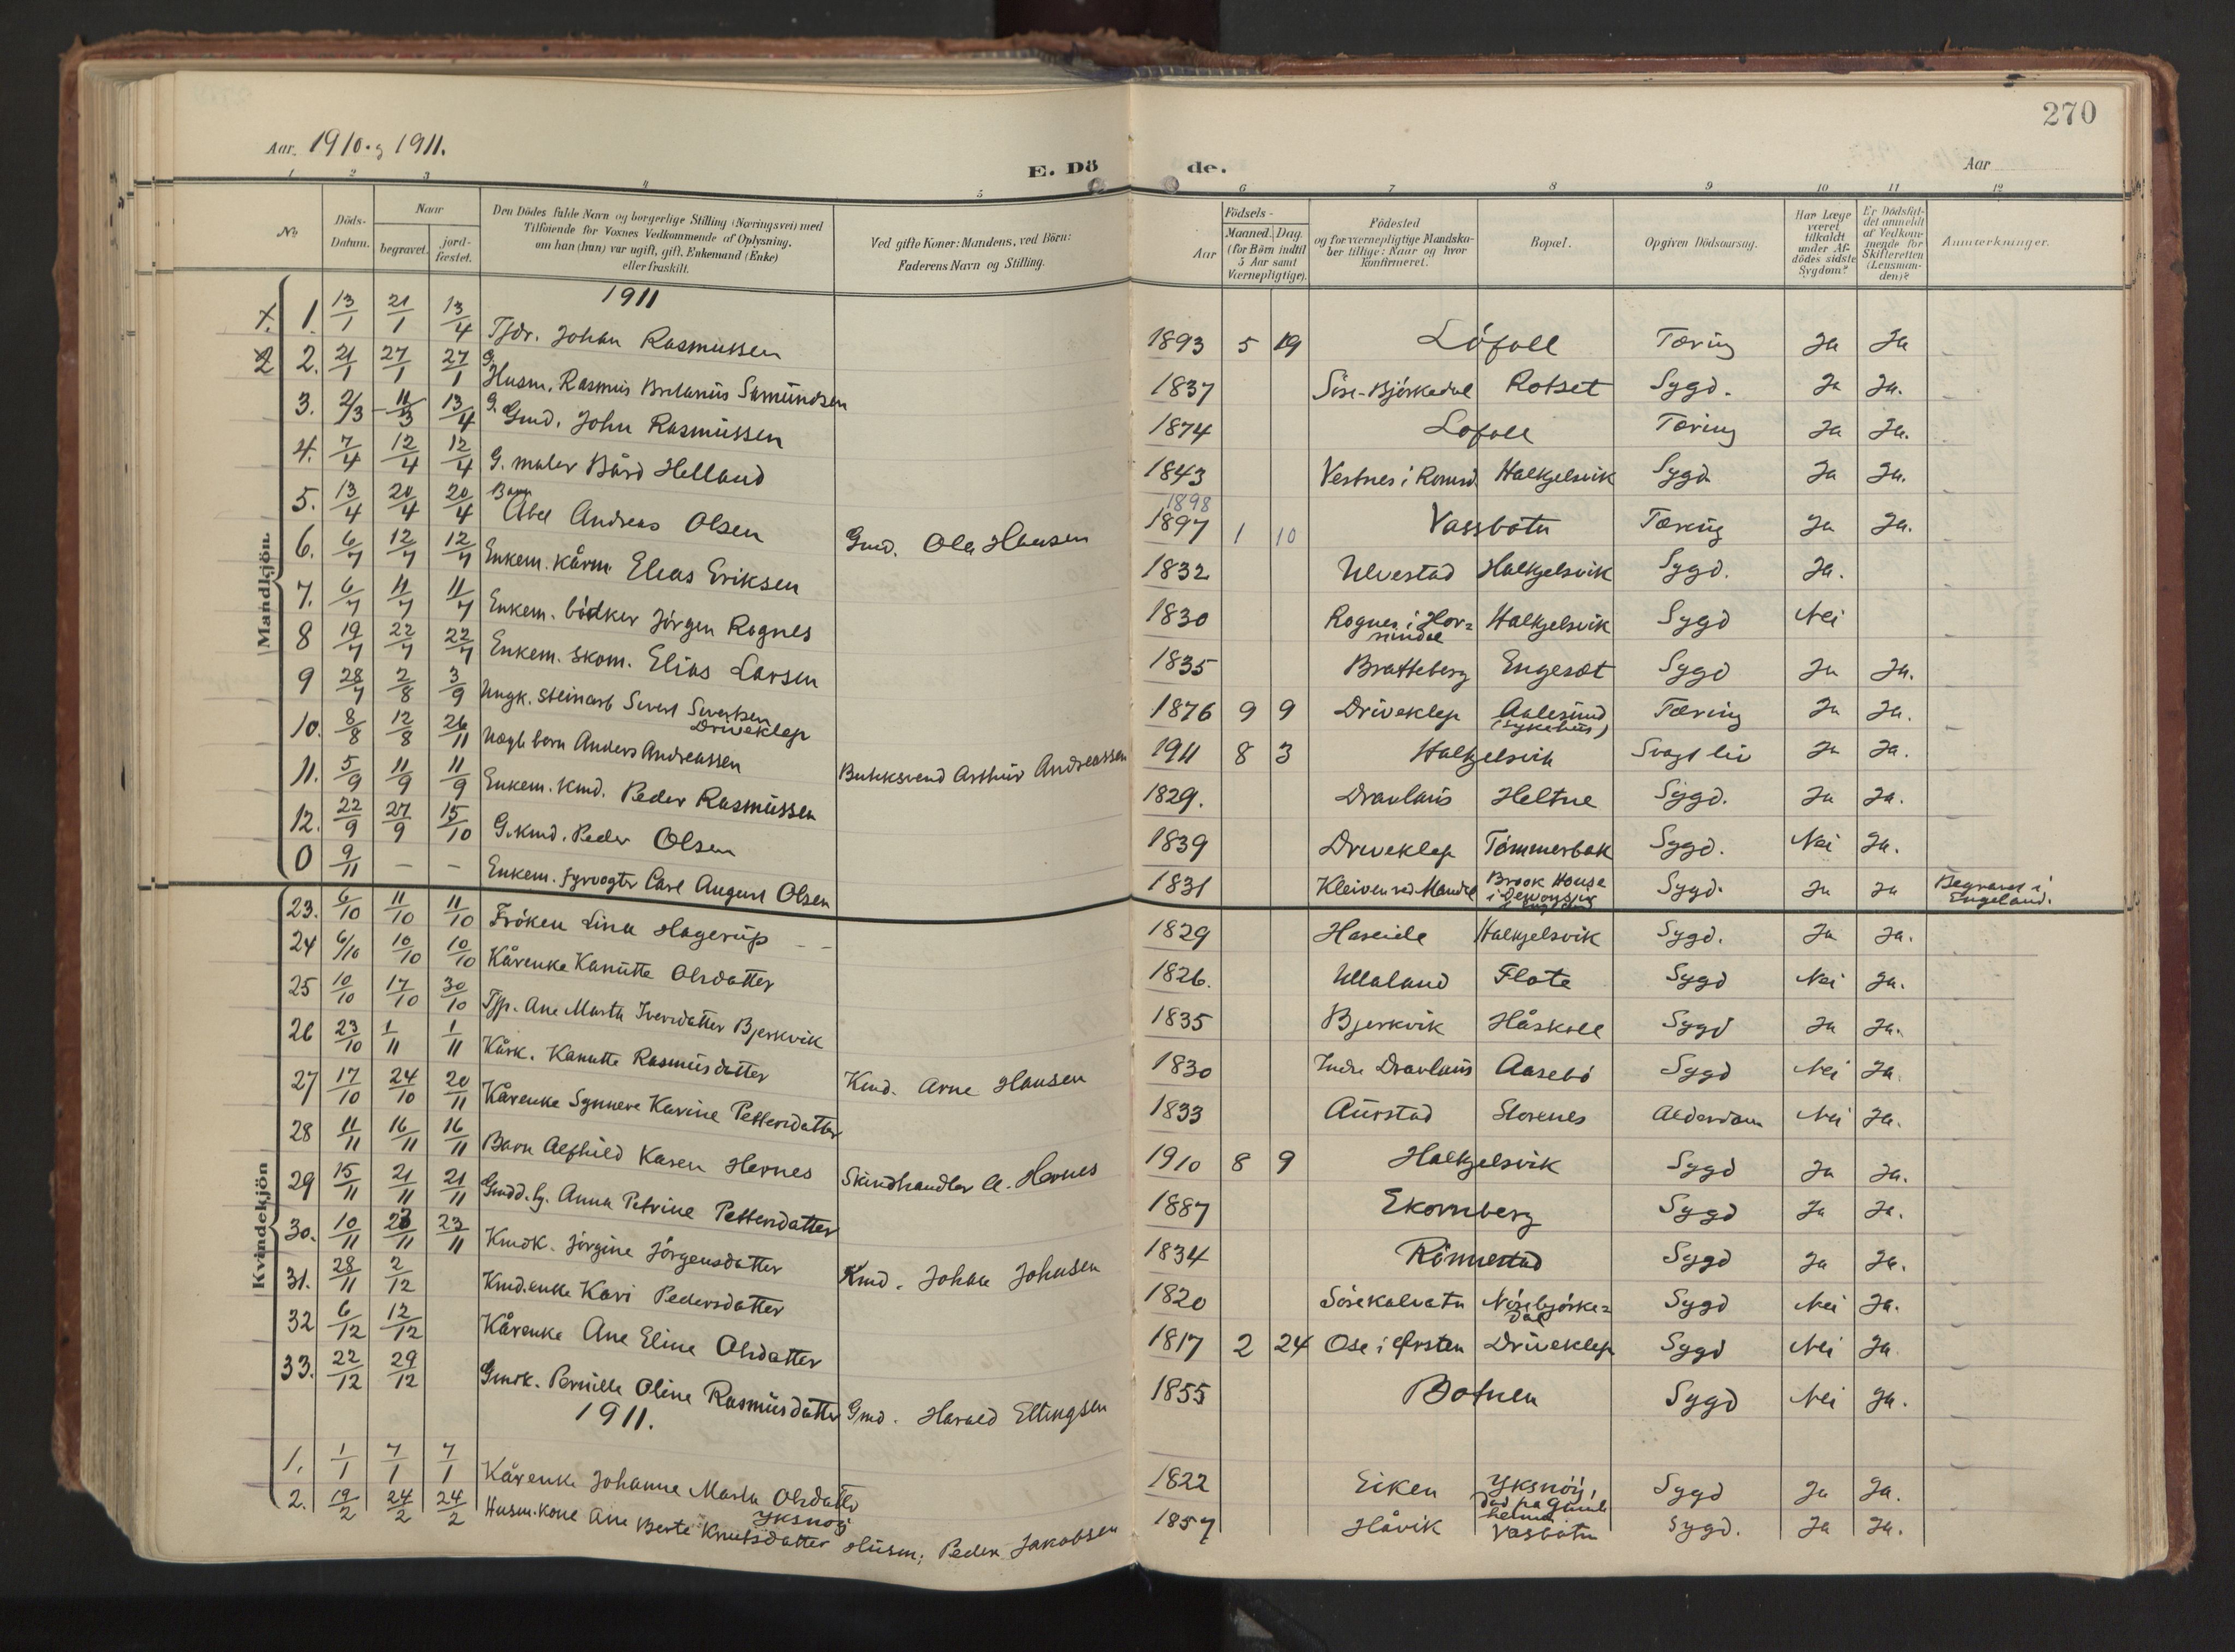 270
Aar 1910 og 1911.
E. Döde.
Aar
1 2 3 4 5 6 7 8 9 10 11 12
No
Döds-Datum.
Naar
begravet.
jordfæstet.
Den Dödes fulde Navn og borgerlige Stilling (Næringsvei) med
Tilföiende for Voxnes Vedkommende af Oplysning,
om han (hun) var ugift, gift, Enkemand (Enke)
eller fraskilt.
Ved gifte Koner: Mandens, ved Börn:
Faderens Navn og Stilling.
Födsels-
Aar
Maaned. Dag.
(for Börn indtil
5 Aar samt
Værnepligtige).
Födested
og for værnepligtige Mandskaber tillige: Naar og hvor
konfirmeret.
Bopæl.
Opgiven Dödsaarsag.
Har Læge
været
tilkaldt
under Afdödes sidste
Sygdom?
Er Dödsfaldet anmeldt
af Vedkommende for
Skifteretten
(Lensmanden)?
Anmærkninger.
Mandkjön
1911
1. 13/1 21/1 13/4 Tjdr. Johan Rasmussen 1893 5 19 Löfoll Tæring Ja Ja
2. 21/1 27/1 27/1 G. Husm. Rasmus Samundsen 1837 Söre-Björkedal Rotset Sygd. Ja Ja.
3. 2/3 11/3 13/4 G. Gmd. John Rasmussen 1874 Lofoll Tæring Ja Ja.
4. 7/4 12/4 12/4 G. maler Bård Helland 1843 Vestnes i Romsd. Halkjelsvik Sygd. Ja Ja.
5. 13/4 20/4 20/4 Barn Abel Andreas Olsen Gmd. Ola Hansen 1898 1897 1 10 Vassbotn Tæring Ja Ja.
6. 6/7 12/7 12/7 Enkem. kårm. Elias Eriksen 1832 Ulvestad Halkjelsvik Sygd. Ja.
7. 6/7 11/7 11/7 Enkem. bödker Jörgen Rognes 1830 Rognes i Hornindal Halkjelsvik Sygd Nei
8 19/7 22/7 22/7 Enkem. skom. Elias Larsen 1835 Bratteberg Engeset Sygd Ja Ja.
9 28/7 2/8 3/9 Ungk. steinarb Sivert Sivertsen Driveklep 1876 9 9 Driveklep Aalesund (sykehus) Tæring Ja Ja.
10. 8/8 12/8 26/11 Uægte barn Anders Andreassen Butiksvend Arthur Andreassen 1911 8 3 Halkjelsvik Svagt liv Ja Ja.
11. 5/9 11/9 11/9 Enkem. Kmd. Peder Rasmussen 1829. Dravlaus Heltne Sygd. Ja Ja.
12. 22/9 27/9 15/10 G. kmd. Peder Olsen 1839 Driveklep Tömmerbak Sygd. Nei Ja.
0 9/11 – – Enkem. fyrvogter Carl August Olsen 1831 Kleiven ved Mandal Brook House i Sygd. Ja Ja Begravet i Engeland.
Kvindekjön
23. 6/10 11/10 11/10 Fröken Lina Hagerup 1829 Hareide Halkjelsvik Sygd. Ja Ja.
24 6/10 10/10 10/10 Kårenke Kanutte Olsdatter 1826. Ullaland Flote Sygd Nei Ja.
25 10/10 17/10 30/10 Tjp. Ane Marta Iversdatter Bjerkvik 1835 Bjerkvik Håskoll Sygd Ja Ja.
26 23/10 1/11 1/11 Kårk. Kanutte Rasmusdatter Kmd. Arne Hansen 1830 Indre Dravlaus Aasebö Sygd Nei Ja.
27 17/10 24/10 20/11 Kårenke Synneve Karine Pettersdatter 1833 Aurstad Storenes Alderdom Nei Ja.
28 11/11 16/11 16/11 Barn Alfhild Karen Hernes Skindhandler A. Hernes 1910 8 9 Halkjelsvik Sygd Ja Ja.
29 15/11 21/11 21/11 Gmdd. Anna Petrine Pettersdatter 1887 Ekornberg Sygd Ja Ja.
30. 10/11 23/11 23/11 Kmdk. Jörgine Jörgensdatter Kmd. Johan Johnsen 1834 Rönnestad Sygd Ja Ja.
31. 28/11 2/12 Kmd.enke Kari Pedersdatter 1820 Sörekalvatn Nörebjörkedal Sygd Nei Ja.
32 6/12 12/12 Kårenke Ane Eline Olsdatter 1817 2 24 Ose i Ørsten Driveklep Sygd Nei Ja
33. 22/12 29/12 Gmdk. Pernille Oline Rasmusdatter Gmd. Harald Ellingsen 1855 Botnen Sygd Nei Ja.
1911.
1. 1/1 7/1 7/1 Kårenke Johanne Marta Olsdatter Yksnöy 1822 Eiken Yksnöy, död på Gamleheimen Sygd Ja Ja.
2. 19/2 24/2 24/2 Husm. kone Ane Berte Knutsdatter Husm. Peder Jakobsen 1857 Håvik Vasbotn Sygd. Ja Ja.